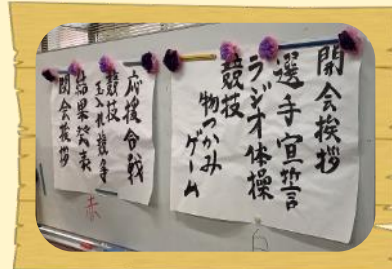 開会挨拶
選手宣誓
ラジオ体操
競技
物つかみ
ゲーム
応援合戦
競技
玉入れ競争
結果発表
閉会挨拶
赤
白